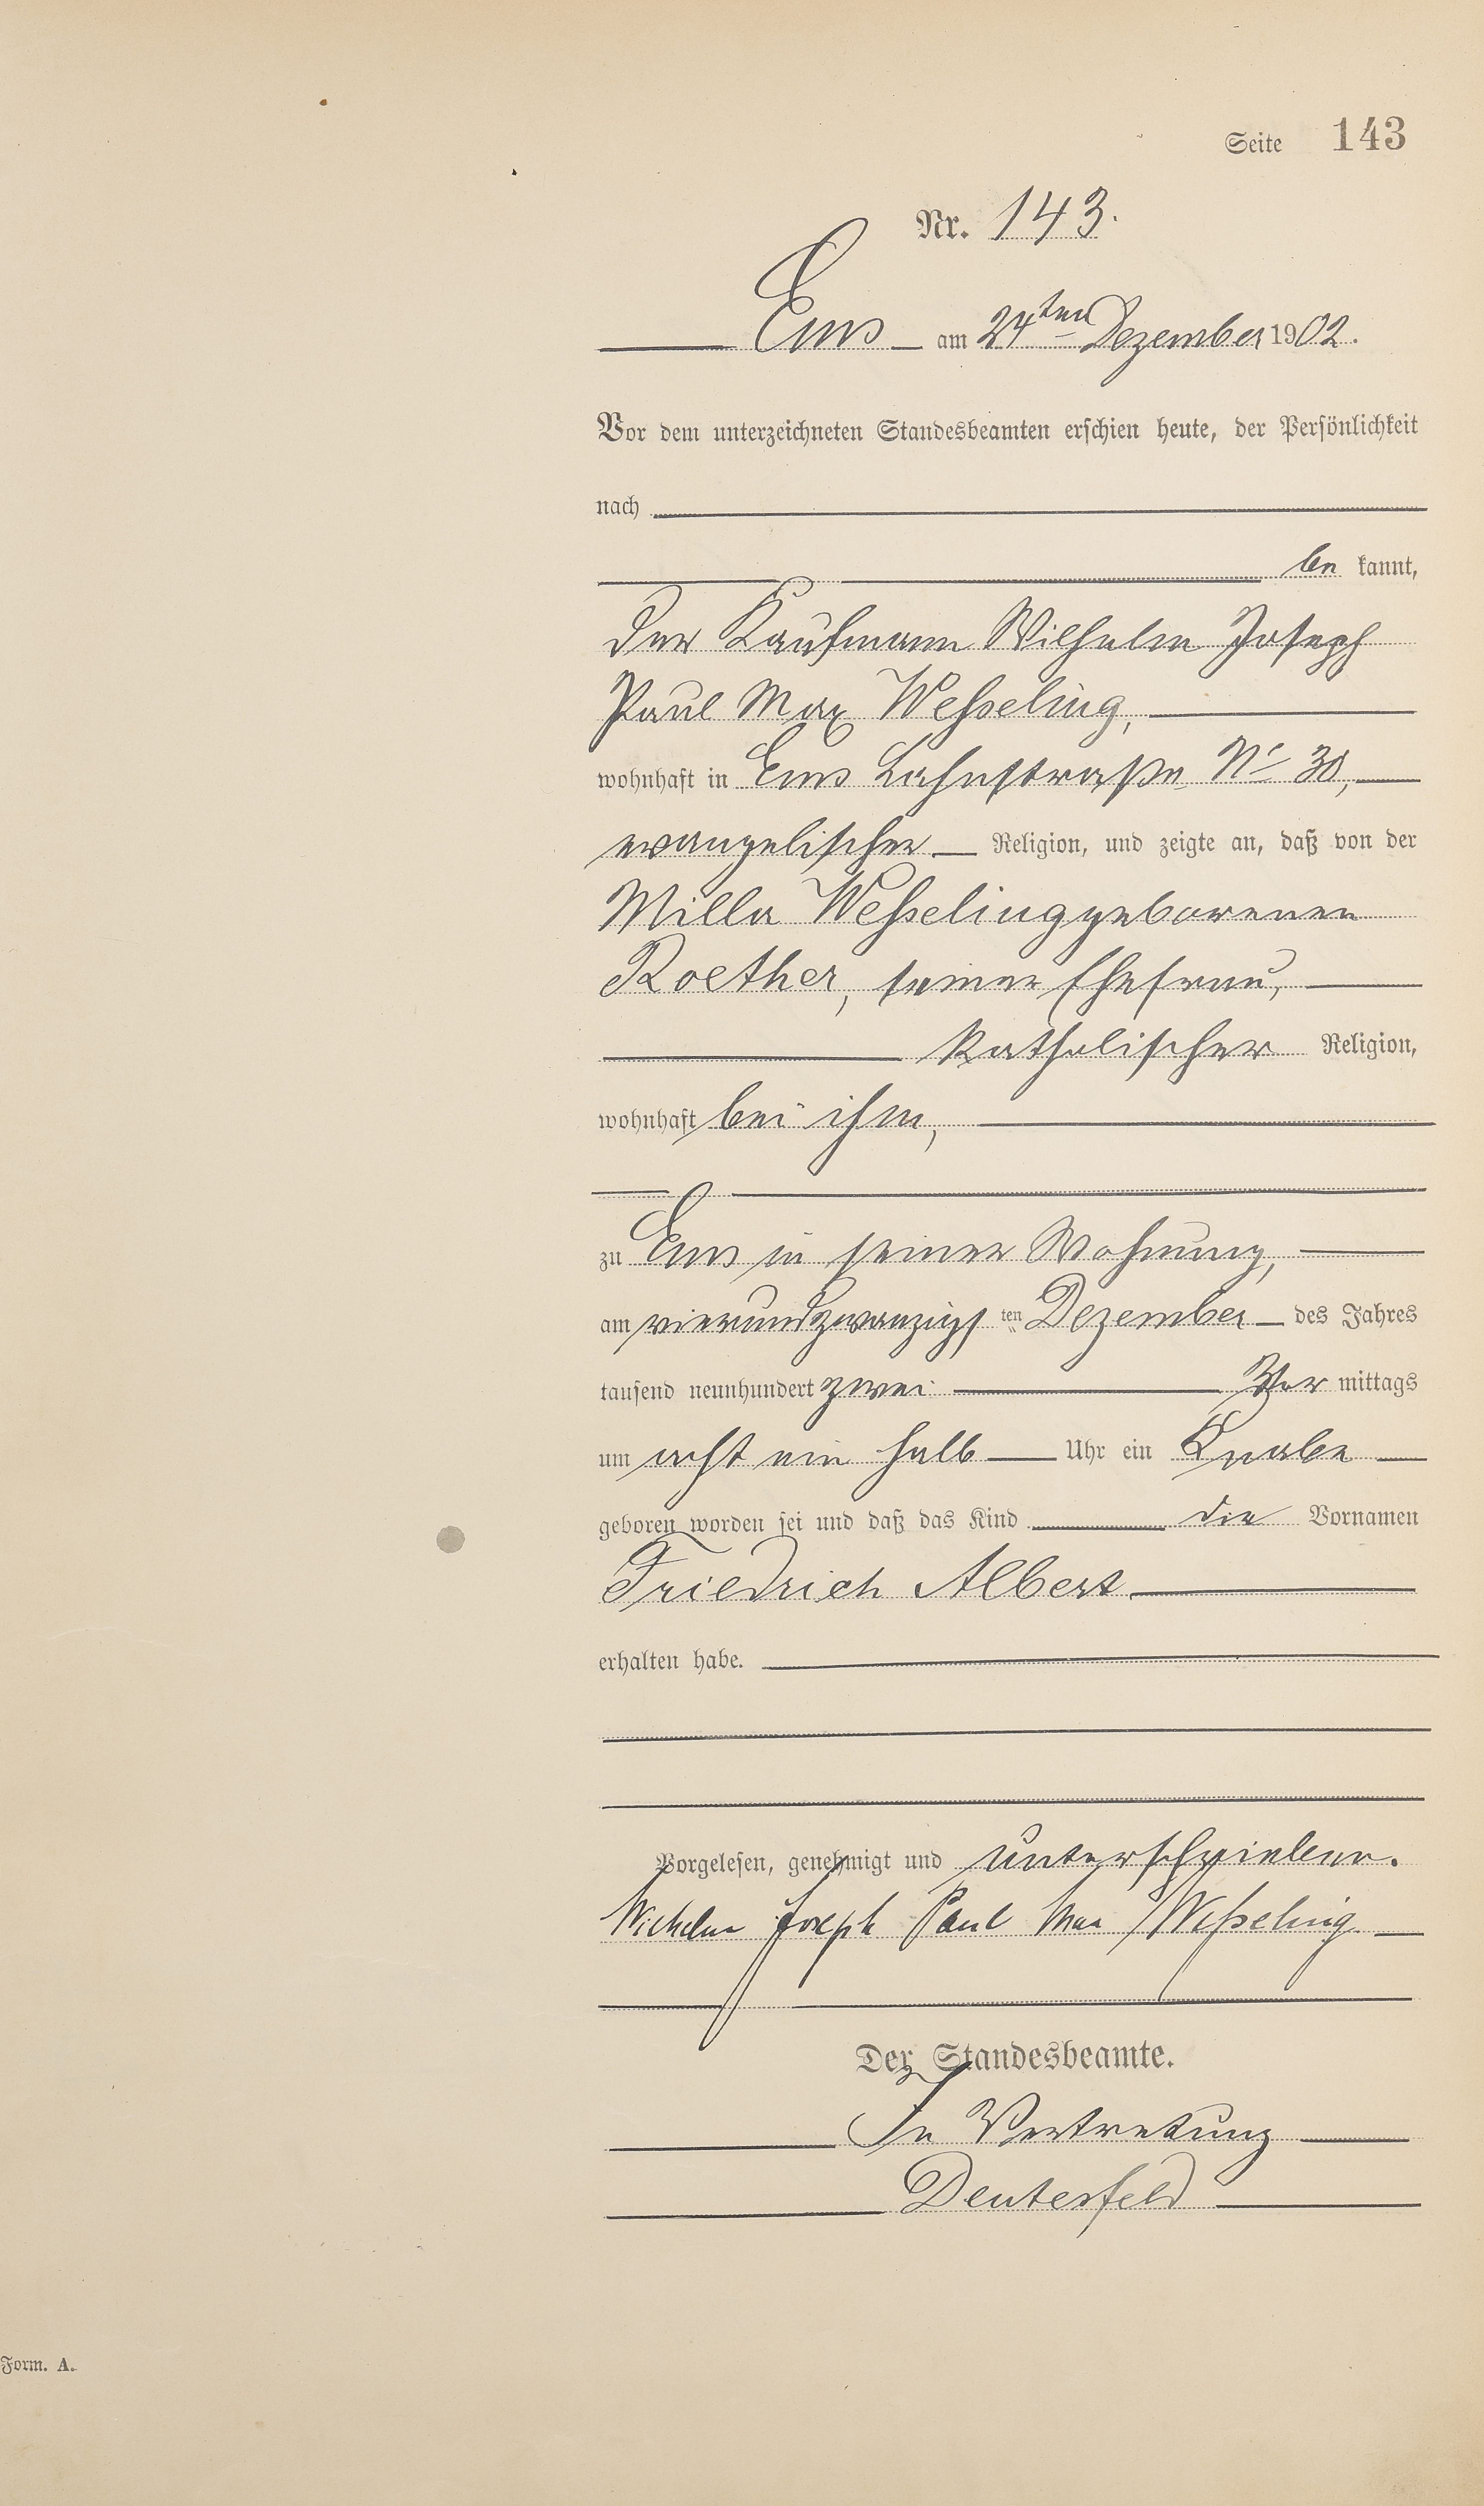 Seite 143
Nr. 143.
Ems am 24ten Dezember 1902.
Vor dem unterzeichneten Standesbeamten erschien heute, der Persönlichkeit
nach
be kannt,
der Kaufmann Wilhelm Joseph
Paul Max Wesseling,
wohnhaft in Ems Lahnstraße No 30,
evangelischer Religion, und zeigte an, daß von der
Milla Wesseling geborenen
Roether, seiner Ehefrau,
katholischer Religion,
wohnhaft bei ihm,
zu Ems in seiner Wohnung,
am vierundzwanzigsten Dezember des Jahres
tausend neunhundert zwei Vor mittags
um acht ein halb Uhr ein Knabe
geboren worden sei und daß das Kind die Vornamen
Friedrich Albert
erhalten habe.
Vorgelesen, genehmigt und unterschrieben.
Wilhelm Joseph Paul Max Wesseling
Der Standesbeamte.
In Vertretung
Deuterfeld
Form. A.